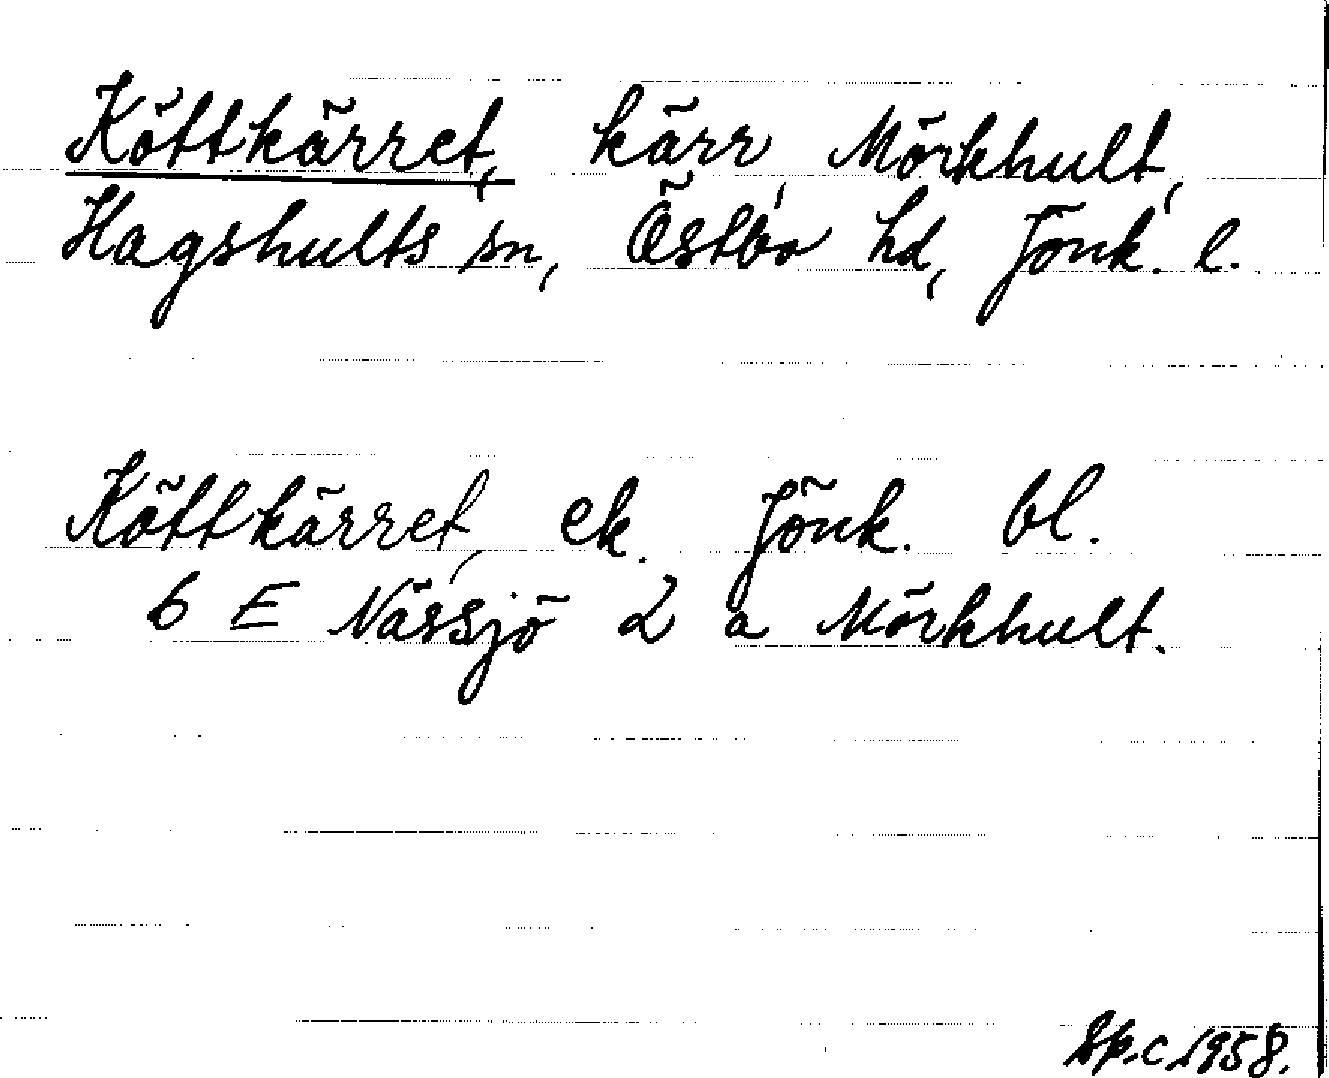 Köttkärret, kärr, Mörkhult,
Hagshults sn, Östbo hd, Jönk. l.
Köttkärret, ek. Jönk. bl.
6 E Nässjö 2 a Mörkhult.
Sp.c. 1958.